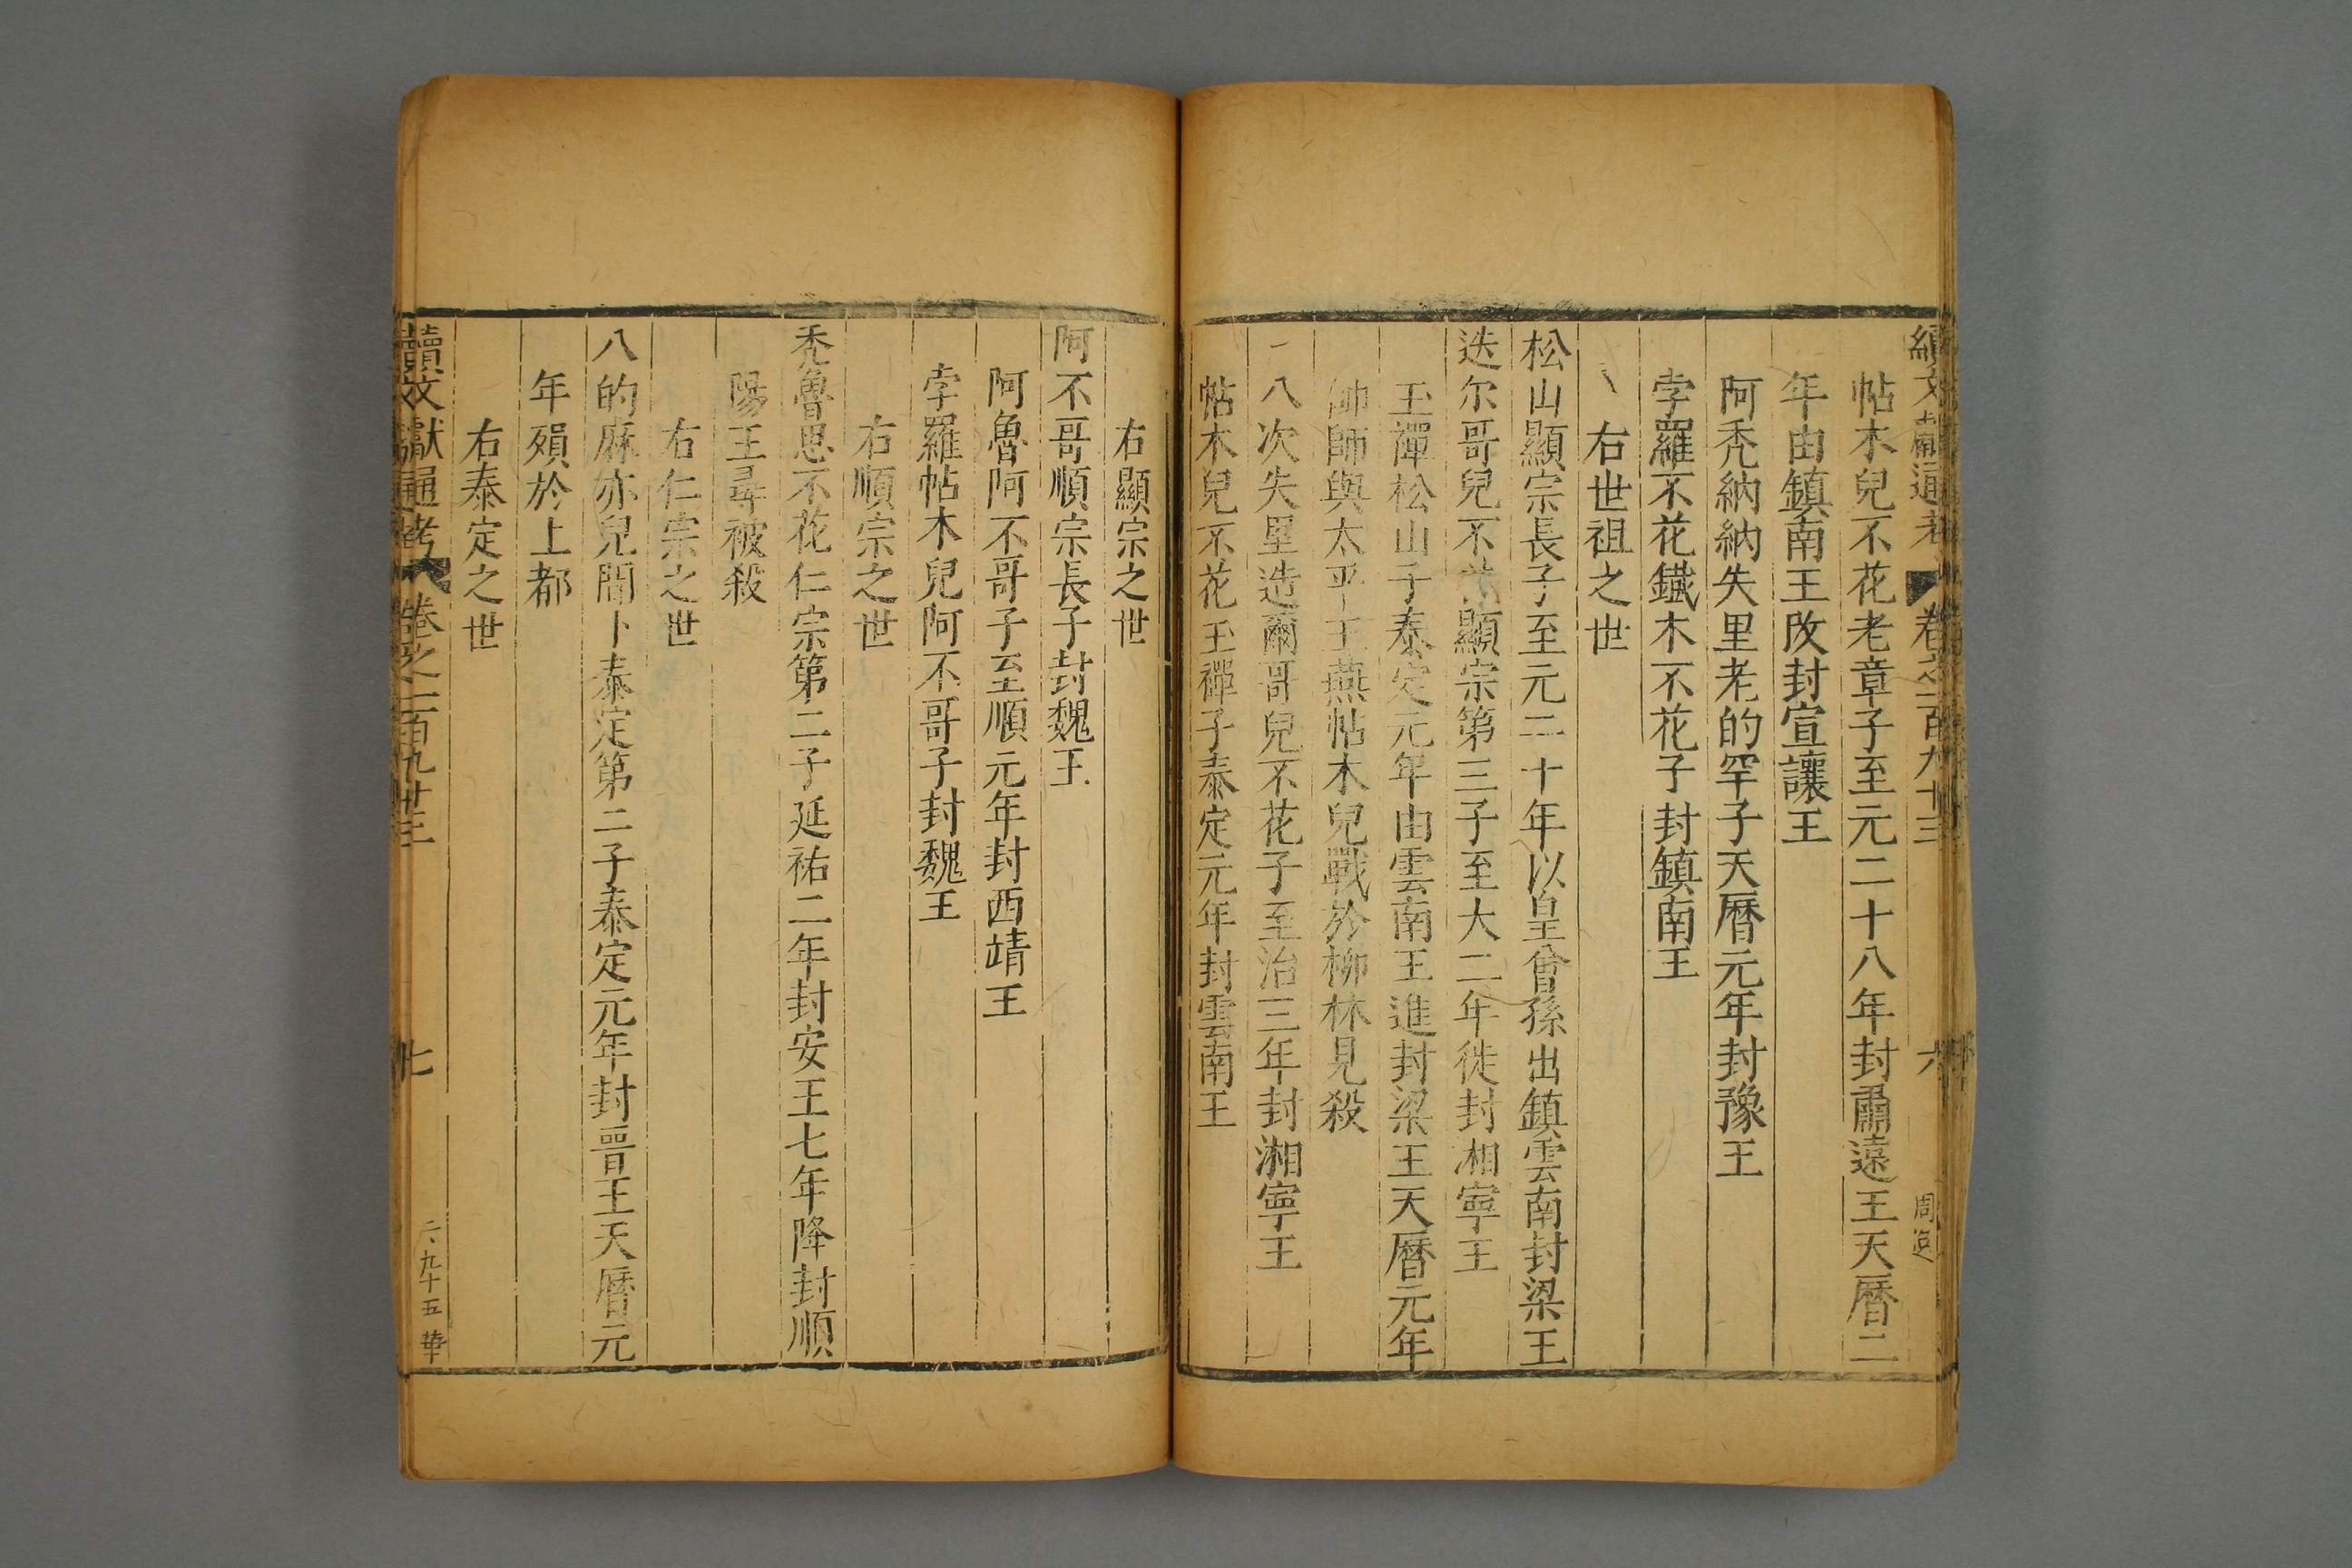 續文獻通考 卷之二百九十三 六 周
帖木兒不花老章子至元二十八年封肅遠王天曆二
年由鎮南王改封宣讓王
阿禿納納失里老的罕子天曆元年封豫王
孛羅不花鐵木不花子封鎮南王
右世祖之世
松山顯宗長子至元二十年以皇曾孫出鎮雲南封梁王
迭尔哥兒不花顯宗第三子至大二年徙封湘寧王
王禪松山子泰定元年由雲南王進封梁王天曆元年
帥師與太平王燕帖木兒戰於柳林見殺
八次失里迭爾哥兒不花子至治三年封湘寧王
帖木兒不花王禪子泰定元年封雲南王
右顯宗之世
阿不哥順宗長子封魏王
阿魯阿不哥子至順元年封西靖王
孛羅帖木兒阿不哥子封魏王
右順宗之世
禿魯思不花仁宗第二子延祐二年封安王七年降封順
陽王尋被殺
右仁宗之世
八的麻亦兒間卜泰定第二子泰定元年封晉王天曆元
年殞於上都
右泰定之世
續文獻通考 卷之二百九十三 七 二九十五 華